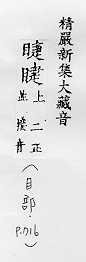 精嚴新集大藏音
睫
上二正
並接音
（目部．P.716）